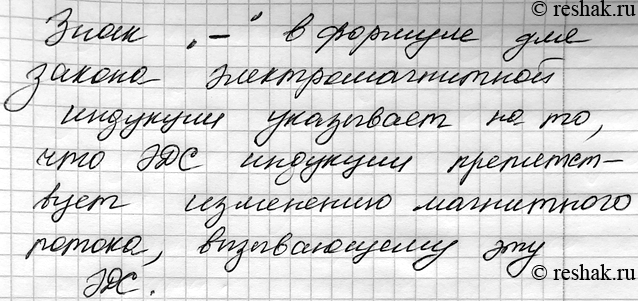 © reshak.ru
Знак „–“ в формуле для
закона электромагнитной
индукции указывает на то,
что ЭДС индукции препятст-
вует изменению магнитного
потока, вызывающему эту
ЭДС.
© reshak.ru